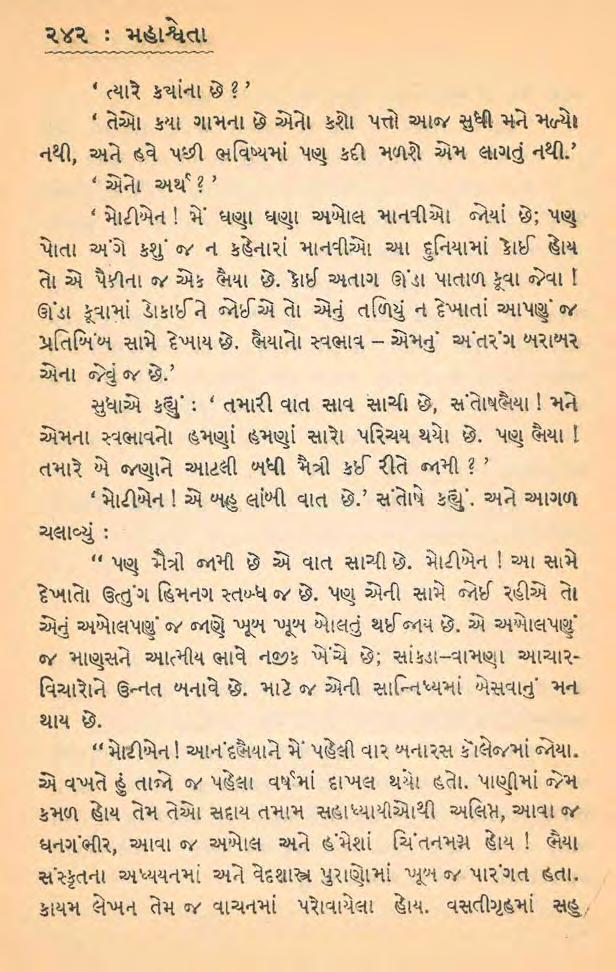 ૨૪૨ : મહાશ્વેતા
‘ ત્યારે ક્યાંના છે ? ’
‘ તેઓ કયા ગામના છે એનો કશો પત્તો આજ સુધી મને મળ્યો
નથી, અને હવે પછી ભવિષ્યમાં પણ કદી મળશે એમ લાગતું નથી.’
‘ એનો અર્થ ? ’
‘ મોટીબેન ! મેં ઘણા ઘણા અબોલ માનવીઓ જોયાં છે; પણ
પોતા અંગે કશું જ ન કહેનારાં માનવીઓ આ દુનિયામાં કોઈ હોય
તો એ પૈકીના જ એક ભૈયા છે. કોઈ અતાગ ઊંડા પાતાળ કૂવા જેવા !
ઊંડા કૂવામાં ડોકાઈને જોઈએ તો એનું તળિયું ન દેખાતાં આપણું જ
પ્રતિબિંબ સામે દેખાય છે. ભૈયાનો સ્વભાવ – એમનું અંતરંગ બરાબર
એના જેવું જ છે.’
સુધાએ કહ્યું : ‘ તમારી વાત સાવ સાચી છે, સંતોષભૈયા ! મને
એમના સ્વભાવનો હમણાં હમણાં સારો પરિચય થયો છે. પણ ભૈયા !
તમારે બે જણાને આટલી બધી મૈત્રી કઈ રીતે જામી ? ’
‘ મોટીબેન ! એ બહુ લાંબી વાત છે.’ સંતોષે કહ્યું. અને આગળ
ચલાવ્યું :
“ પણ મૈત્રી જામી છે એ વાત સાચી છે. મોટીબેન ! આ સામે
દેખાતો ઉત્તુંગ હિમનગ સ્તબ્ધ જ છે. પણ એની સામે જોઈ રહીએ તો
એનું અબોલપણું જ જાણે ખૂબ ખૂબ બોલતું થઈ જાય છે. એ અબોલપણું
જ માણસને આત્મીય ભાવે નજીક ખેંચે છે; સાંકડા–વામણા આચાર-
વિચારોને ઉન્નત બનાવે છે. માટે જ એની સાન્નિધ્યમાં બેસવાનું મન
થાય છે.
“ મોટીબેન ! આનંદભૈયાને મેં પહેલી વાર બનારસ કૉલેજમાં જોયા.
એ વખતે હું તાજો જ પહેલા વર્ષમાં દાખલ થયો હતો. પાણીમાં જેમ
કમળ હોય તેમ તેઓ સદાય તમામ સહાધ્યાયીઓથી અલિપ્ત, આવા જ
ધનગંભીર, આવા જ અબોલ અને હંમેશાં ચિંતનમગ્ન હોય ! ભૈયા
સંસ્કૃતના અધ્યયનમાં અને વેદશાસ્ત્ર પુરાણોમાં ખૂબ જ પારંગત હતા.
કાયમ લેખન તેમ જ વાચનમાં પરોવાયેલા હોય. વસતીગૃહમાં સહુ